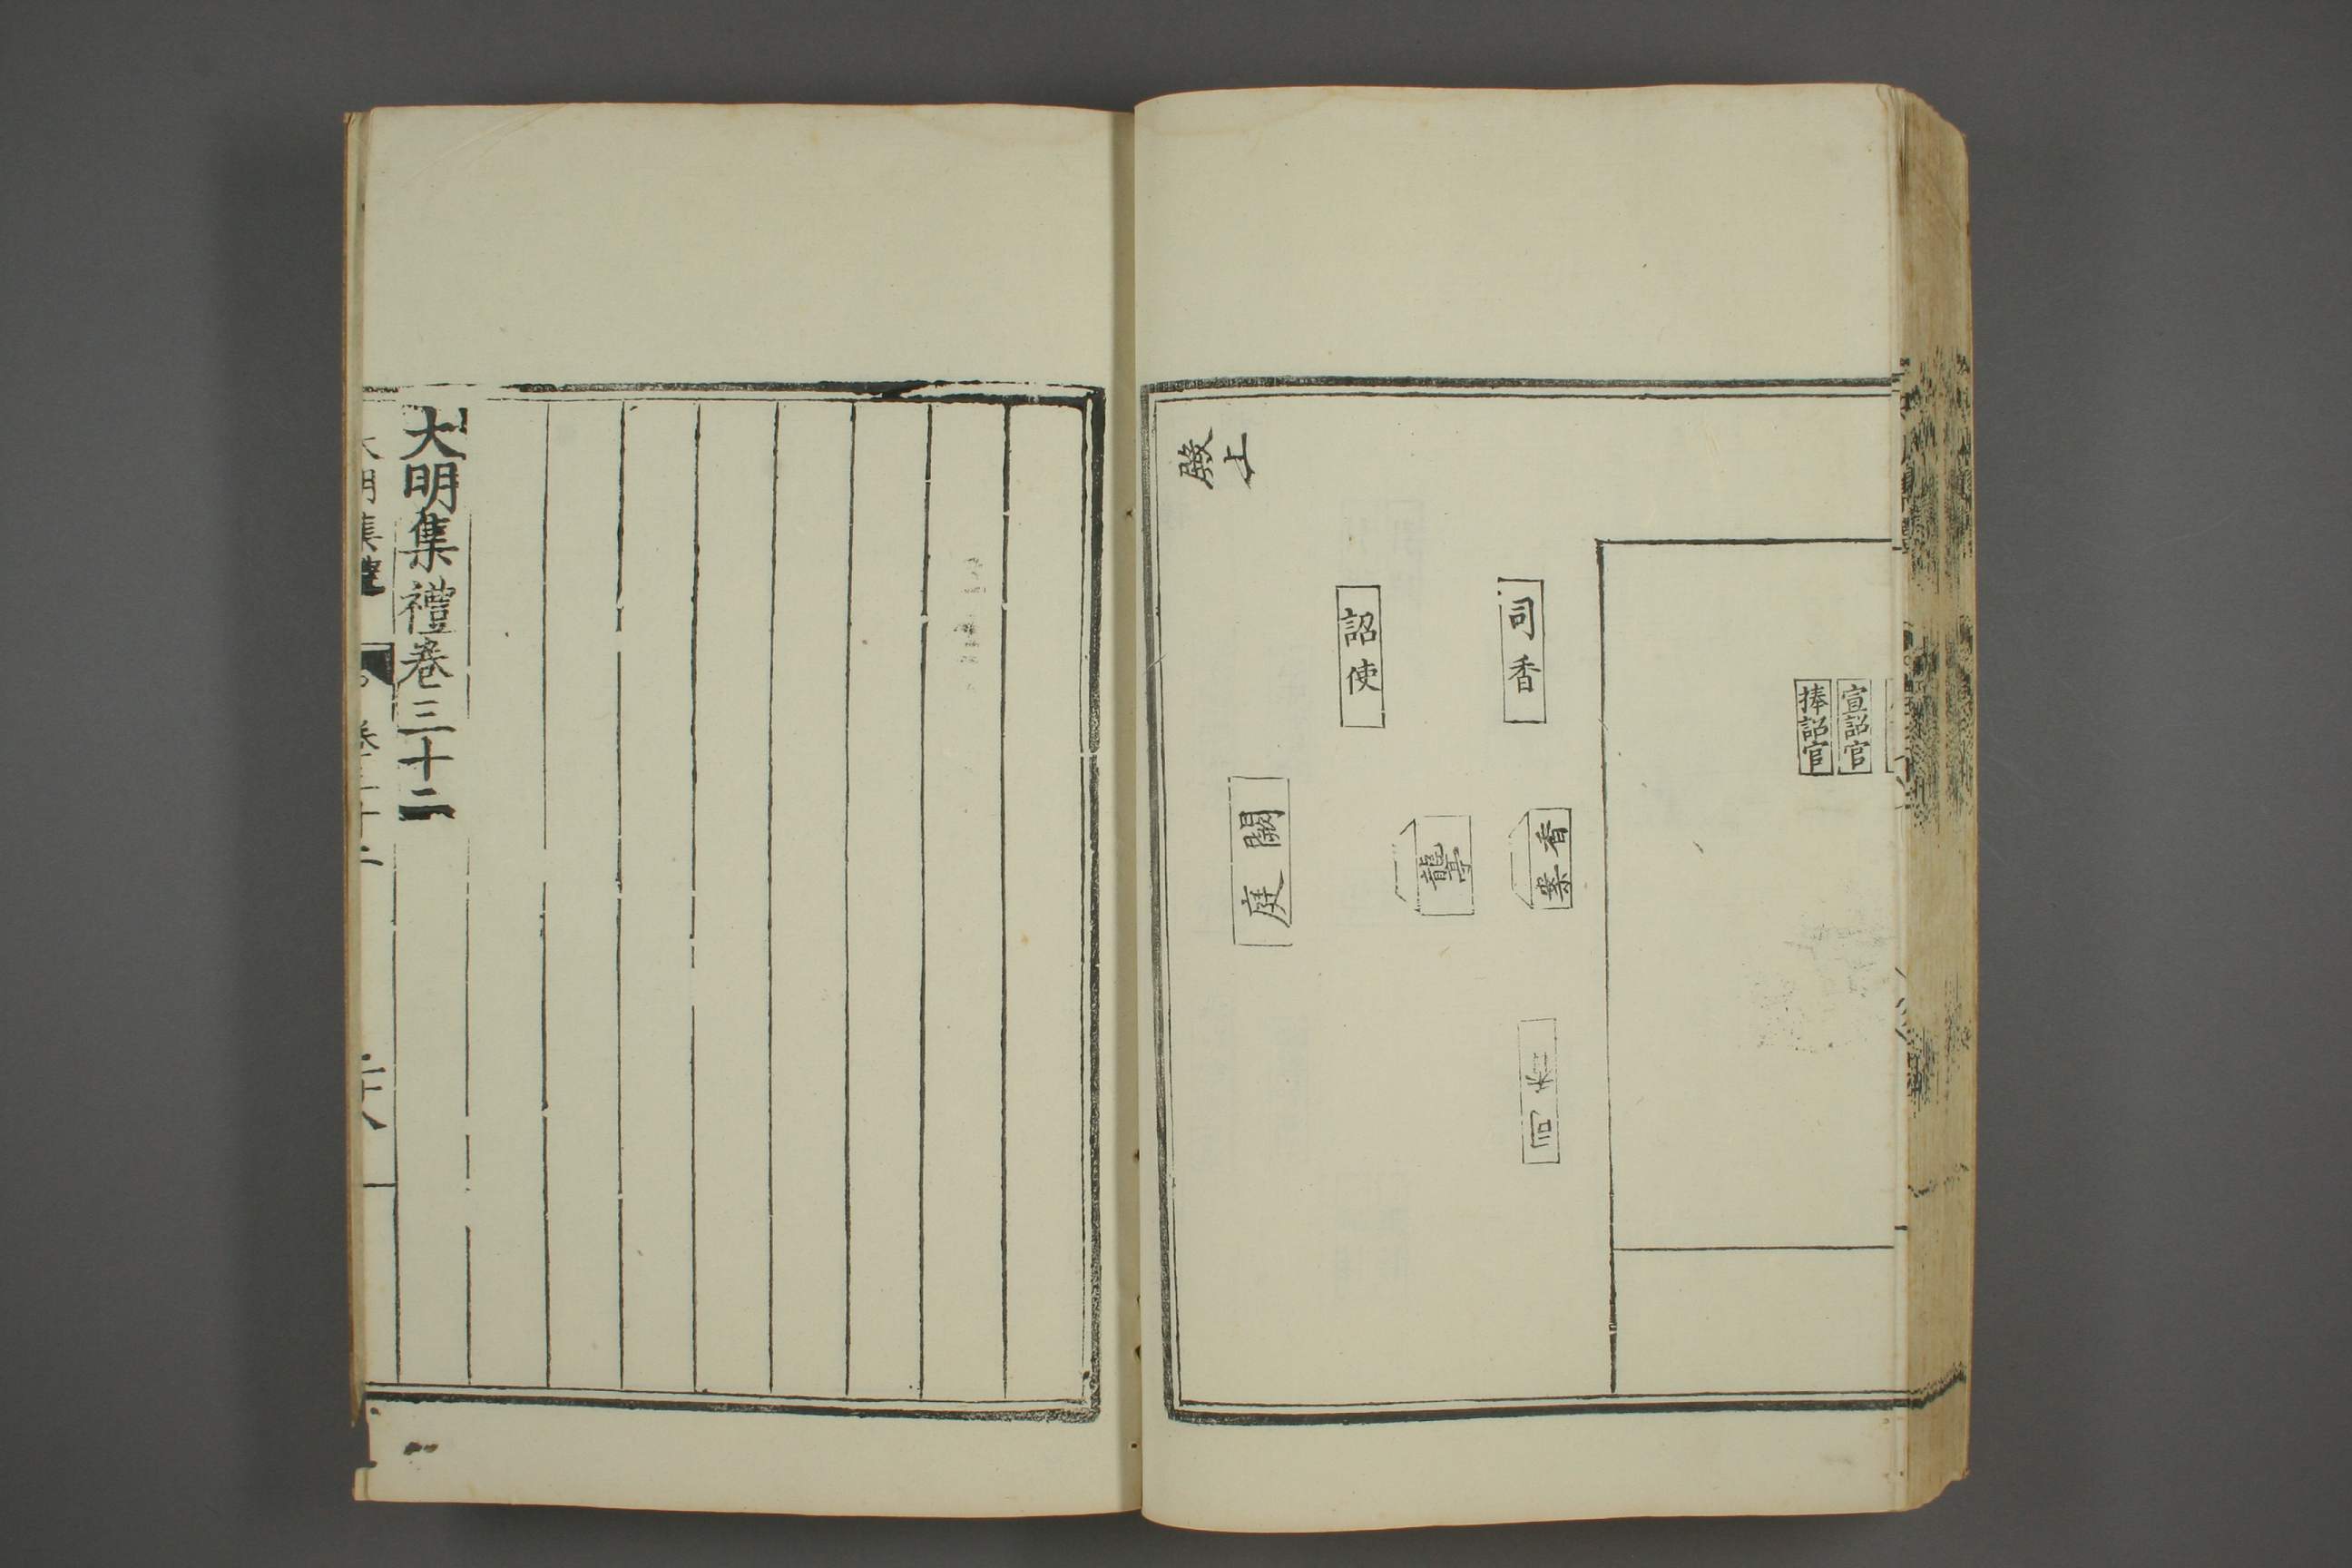 宣詔官
捧詔官
司香
香案
司香
龍亭
詔使
闕庭
殿上
大明集禮卷三十二
大明集禮
卷三十二
二十八